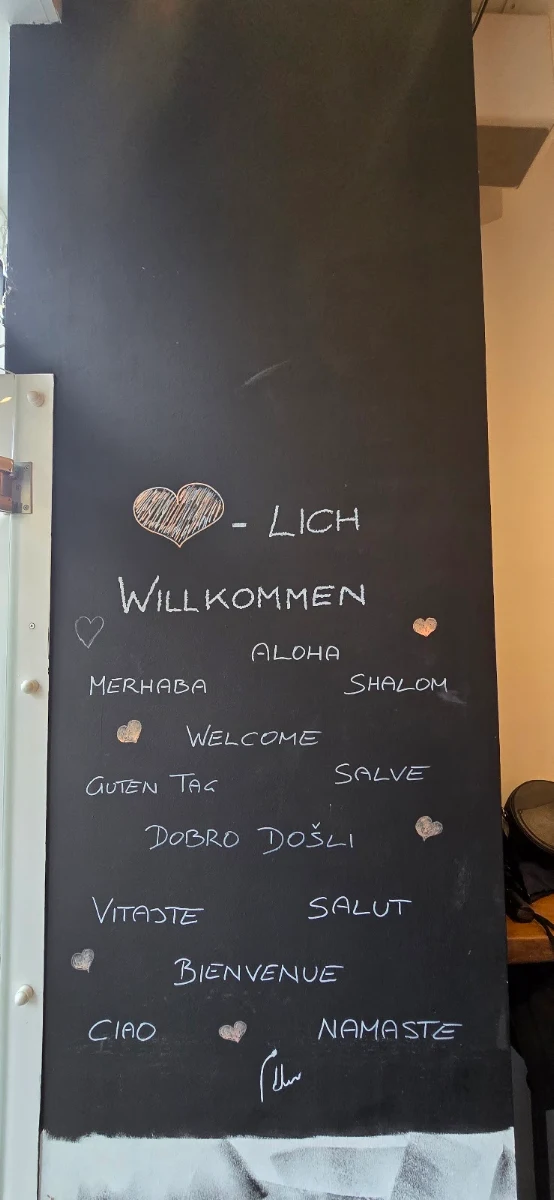 - LICH
WILLKOMMEN
ALOHA
MERHABA SHALOM
WELCOME
GUTEN TAG SALVE
DOBRO DOŠLI
VITAJTE SALUT
BIENVENUE
CIAO NAMASTE